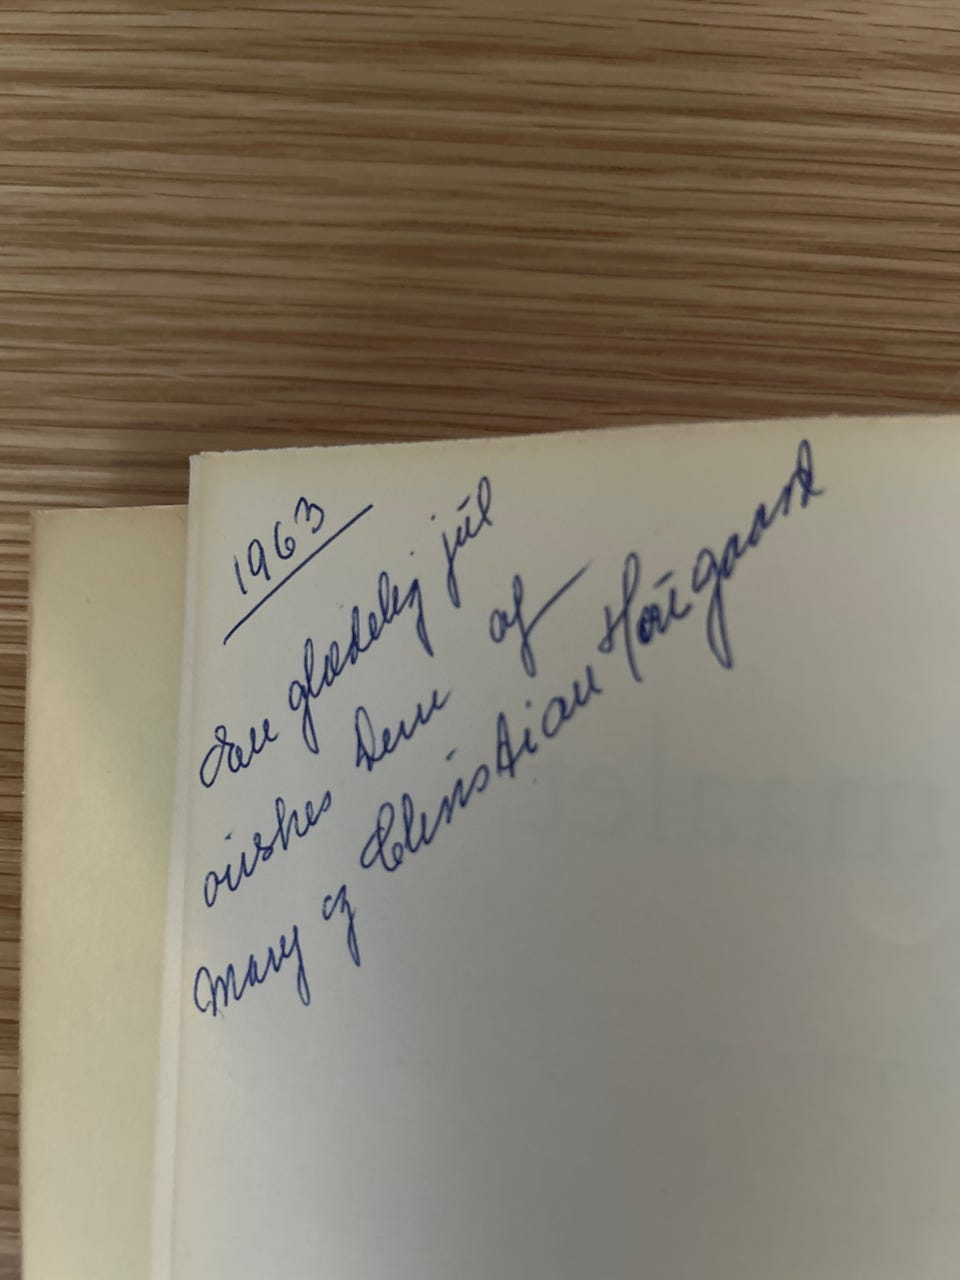 1963
En glædelig jūl
ønskes Dem af
Mary og Christian Hougaard